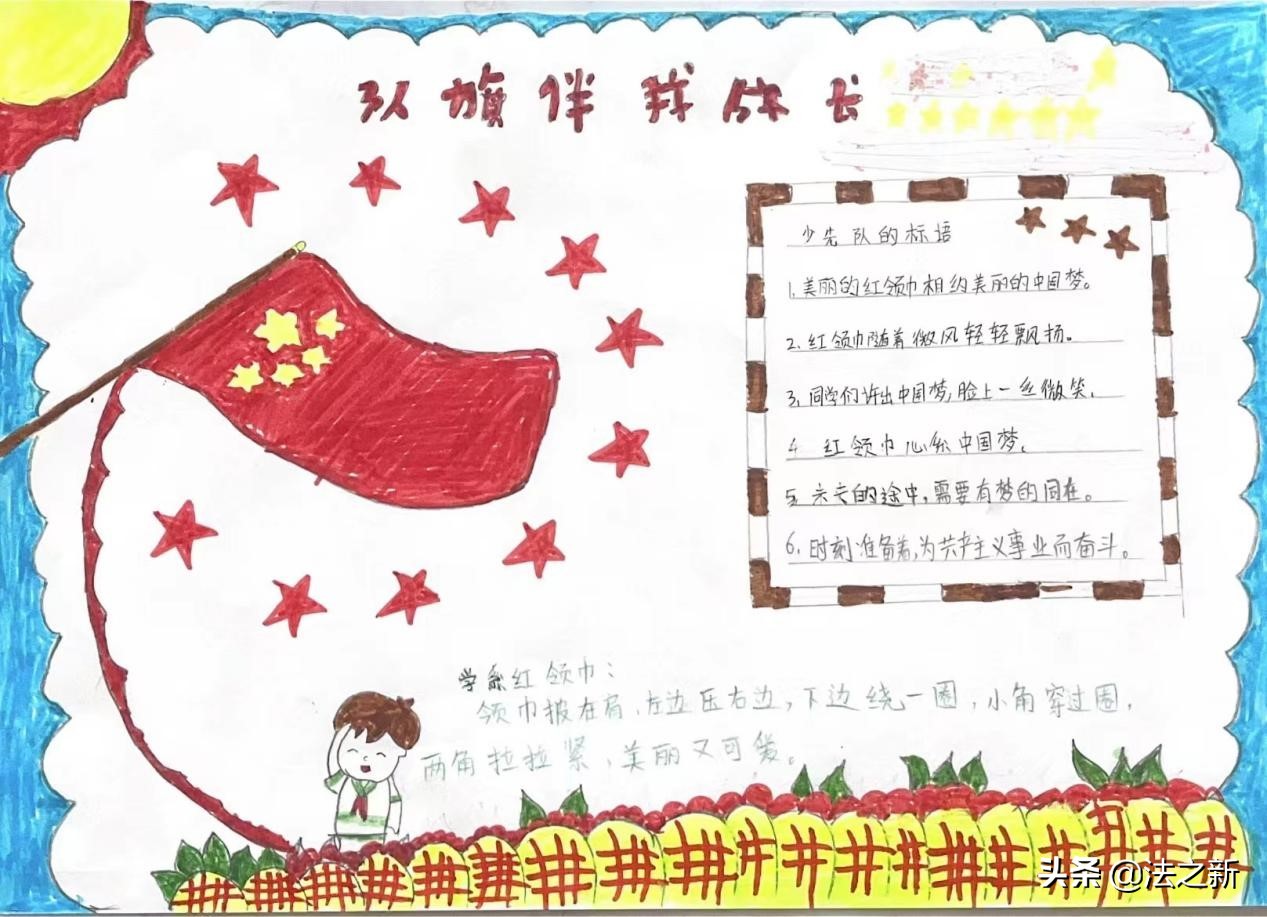 队旗伴我成长
少先队的标语
1.美丽的红领巾相约美丽的中国梦。
2.红领巾随着微风轻轻飘扬。
3.同学们许出中国梦,脸上一丝微笑.
4 红领巾心系中国梦。
5.示文的途中,需要有梦的同在。
6.时刻准备着,为共产主义事业而奋斗。
学系红领巾：
领巾披在肩,左边压右边,下边绕一圈,小角穿过圈,
两角拉拉紧,美丽又可爱。
头条 @法之新